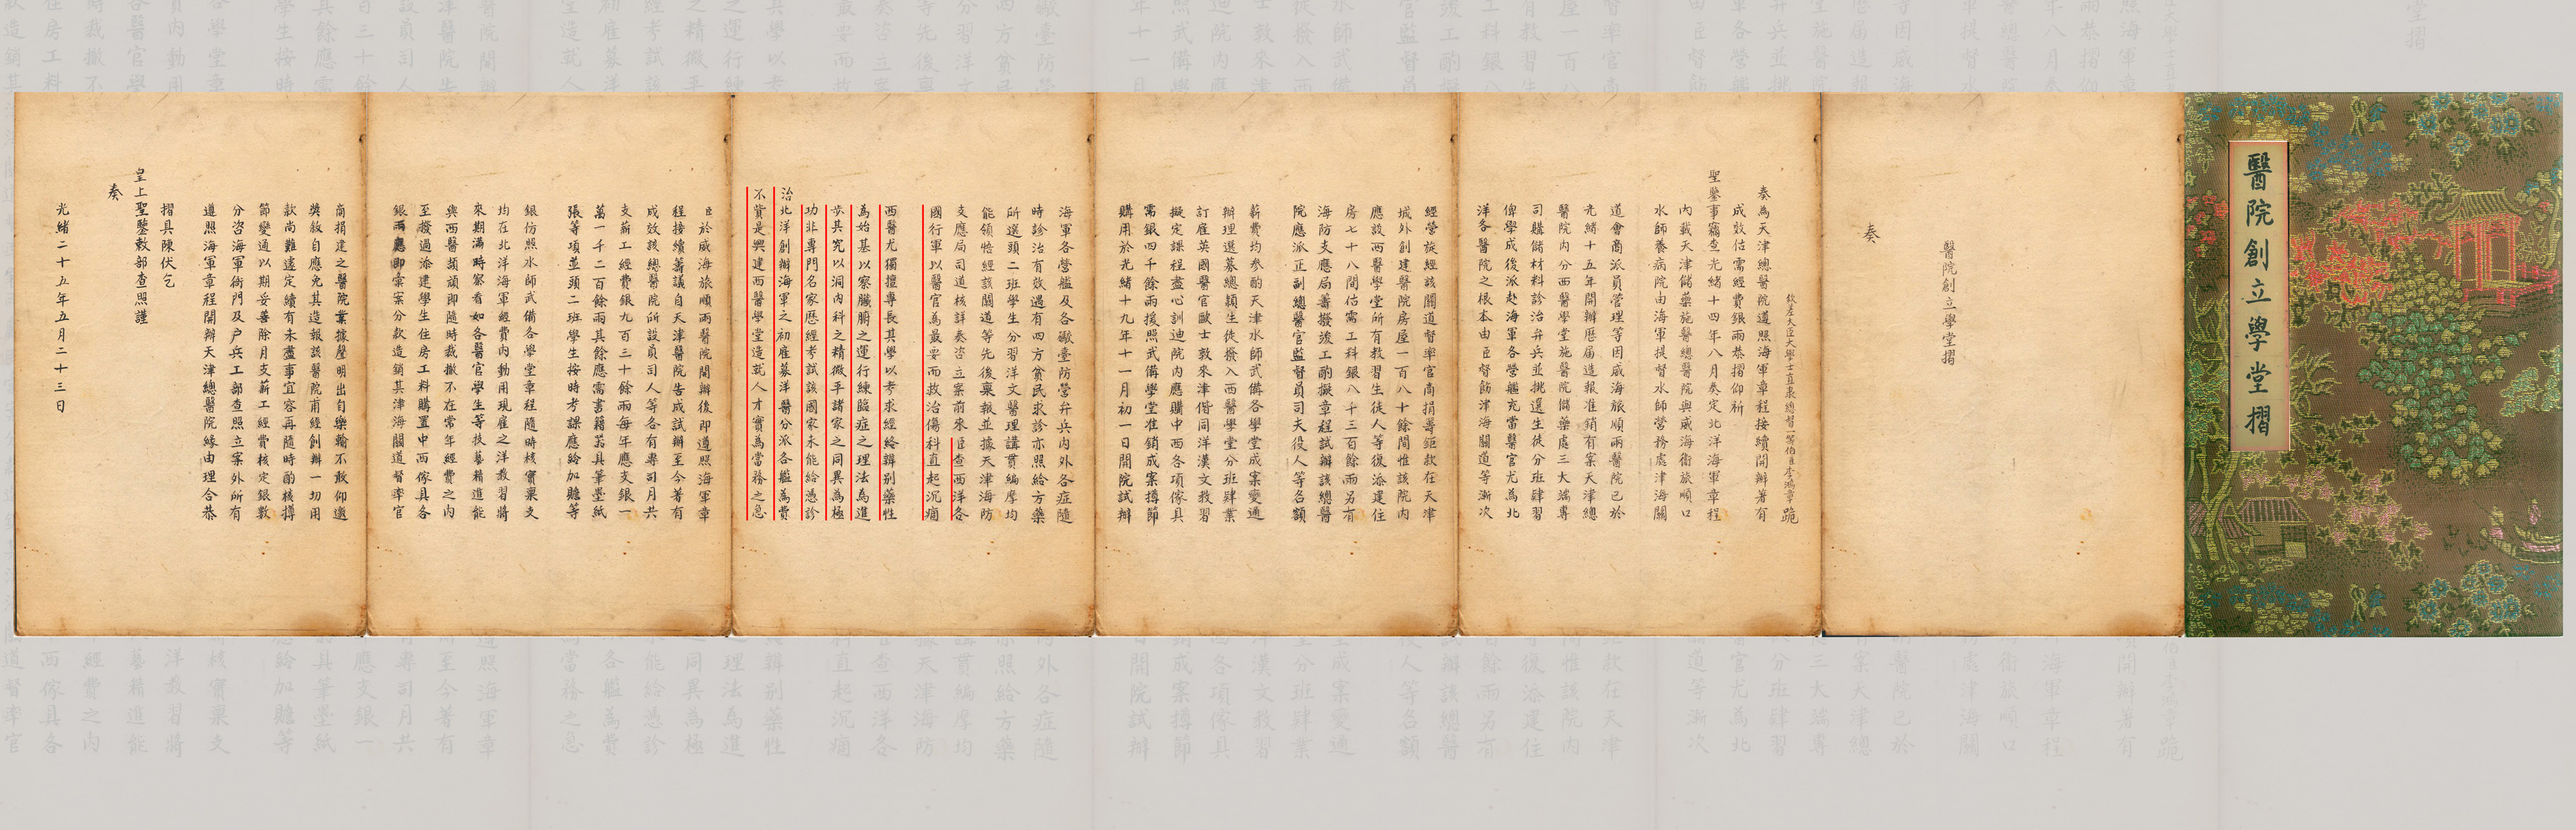 醫院創立學堂摺
醫院創立學堂摺
奏
欽差大臣大學士直隸總督一等伯臣李鴻章跪
奏為天津總醫院遵照海軍章程接續開辦著有
成效估需經費銀兩恭摺仰祈
聖鑒事竊查光緒十四年八月奏定北洋海軍章程
內載天津儲藥施醫總醫院與威海衛旅順口
水師養病院由海軍提督水師營務處津海關
道會商派員管理等因威海旅順兩醫院已於
光緒十五年開辦歷届造報准銷有案天津總
醫院內分西醫學堂施醫院儲藥處三大端專
司購儲材料診治弁兵並挑選生徒分班肄習
俾學成後派赴海軍各營艦充當醫官尤為北
洋各醫院之根本由臣督飭津海關道等漸次
經營旋經該關道督率官商捐籌鉅款在天津
城外創建醫院房屋一百八十餘間惟該院內
應設西醫學堂所有教習生徒人等復添建住
房七十八間估需工料銀八千三百餘兩另有
海防支應局籌撥竣工酌擬章程試辦該總醫
院應派正副總醫官監督員司夫役人等名額
薪費均參酌天津水師武備各學堂成案變通
辦理選募總穎生徒撥入西醫學堂分班肄業
訂雇英國醫官歐士敦來津偕同洋漢文教習
擬定課程盡心訓迪院內應購中西各項傢具
需銀四千餘兩援照武備學堂准銷成案撙節
購用於光緒十九年十一月初一日開院試辦
海軍各營艦及各礮臺防營弁兵內外各症隨
時診治有效遇有四方貧民求診亦照給方藥
所選頭二班學生分習洋文醫理講貫編摩均
能領悟經該關道等先後稟報並據天津海防
支應局司道核詳奏咨立案前來臣查西洋各
國行軍以醫官為最要而救治傷科直起沉痼
西醫尤獨擅專長其學以考求經絡辨別藥性
為始基以察臟腑之運行練臨症之理法為進
步其究以洞內科之精微平諸家之同異為極
功非專門名家歷經考試該國家未能給憑診
治北洋創辦海軍之初雇募洋醫分派各艦為費
不貲是興建西醫學堂造就人才實為當務之急
臣於威海旅順兩醫院開辦後即遵照海軍章
程接續籌議自天津醫院告成試辦至今著有
成效該總醫院所設員司人等各有專司月共
支薪工經費銀九百三十餘兩每年應支銀一
萬一千二百餘兩其餘應需書籍器具筆墨紙
張等項並頭二班學生按時考課應給加贍等
銀仿照水師武備各學堂章程隨時核實稟支
均在北洋海軍經費內動用現雇之洋教習將
來期滿時察看如各醫官學生等技藝精進能
與西醫頡頏即隨時裁撤不在常年經費之內
至撥過添建學生住房工料購置中西傢具各
銀兩應即彙案分款造銷其津海關道督率官
商捐建之醫院業據聲明出自樂輸不敢仰邀
獎敘自應免其造報該醫院甫經創辦一切用
款尚難遽定續有未盡事宜容再隨時酌核撙
節變通以期妥善除月支薪工經費核定銀數
分咨海軍衙門及户兵工部查照立案外所有
遵照海軍章程開辦天津總醫院緣由理合恭
摺具陳伏乞
皇上聖鑒敕部查照謹
奏
光緒二十五年五月二十三日